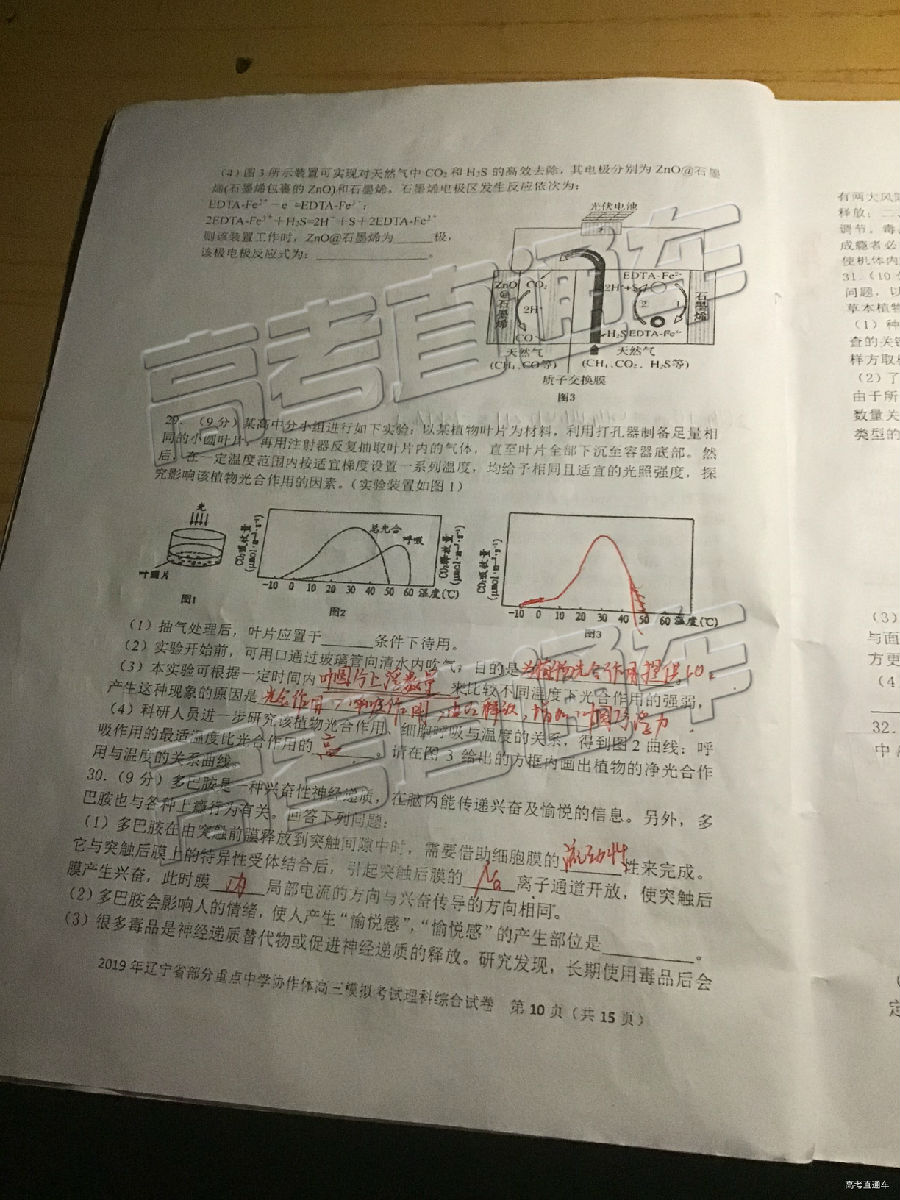 （4）图3所示装置可实现对天然气中CO₂和H₂S的高效去除，其电极分别为ZnO@石墨
烯(石墨烯包裹的ZnO)和石墨烯，石墨烯电极区发生反应依次为：
EDTA-Fe²⁺－e⁻=EDTA-Fe³⁺；
2EDTA-Fe³⁺+H₂S=2H⁺+S+2EDTA-Fe²⁺
则该装置工作时，ZnO@石墨烯为______极，
该极电极反应式为：________________。
光伏电池
ZnO@石墨烯
CO₂
2H⁺
CO
EDTA-Fe²⁺
2H⁺+S
2
1
H₂S
EDTA-Fe³⁺
石墨烯
天然气
(CH₄、CO等)
天然气
(CH₄、CO₂、H₂S等)
质子交换膜
图3
29.（9分）某高中分小组进行如下实验：以某植物叶片为材料，利用打孔器制备足量相
同的小圆叶片，再用注射器反复抽取叶片内的气体，直至叶片全部下沉至容器底部。然
后，在一定温度范围内按适宜梯度设置一系列温度，均给予相同且适宜的光照强度，探
究影响该植物光合作用的因素。（实验装置如图1）
光
叶圆片
图1
CO₂吸收量
(μmol·m⁻²·s⁻¹)
总光合
呼吸
CO₂释放量
(μmol·m⁻²·s⁻¹)
-10 0 10 20 30 40 50 60 温度(℃)
图2
CO₂吸收量
(μmol·m⁻²·s⁻¹)
-10 0 10 20 30 40 50 60 温度(℃)
图3
（1）抽气处理后，叶片应置于______条件下待用。
（2）实验开始前，可用口通过玻璃管向清水内吹气，目的是为植物光合作用提供CO₂。
（3）本实验可根据一定时间内叶圆片上浮数量来比较不同温度下光合作用的强弱，
产生这种现象的原因是光合作用>呼吸作用，
（4）科研人员进一步研究该植物光合作用、细胞呼吸与温度的关系，得到图2曲线：呼
吸作用的最适温度比光合作用的高。请在图3给出的方框内画出植物的净光合作
用与温度的关系曲线。
30.（9分）多巴胺是一种兴奋性神经递质，在脑内能传递兴奋及愉悦的信息。另外，多
巴胺也与各种上瘾行为有关。回答下列问题：
（1）多巴胺在由突触前膜释放到突触间隙中时，需要借助细胞膜的流动性性来完成。
它与突触后膜上的特异性受体结合后，引起突触后膜的Na离子通道开放，使突触后
膜产生兴奋，此时膜内局部电流的方向与兴奋传导的方向相同。
（2）多巴胺会影响人的情绪，使人产生“愉悦感”，“愉悦感”的产生部位是__________。
（3）很多毒品是神经递质替代物或促进神经递质的释放。研究发现，长期使用毒品后会
2019年辽宁省部分重点中学协作体高三模拟考试理科综合试卷 第10页（共15页）
有两大风
释放：二、
调节。毒
成瘾者必
使机体内
31.（10
问题，以
草本植物
（1）种
查的关键
样方取
（2）了
由于所
数量关
类型的
（3）
与面
方更
（4
32.
中
定
高考直通车
高考直通车
高考直通车